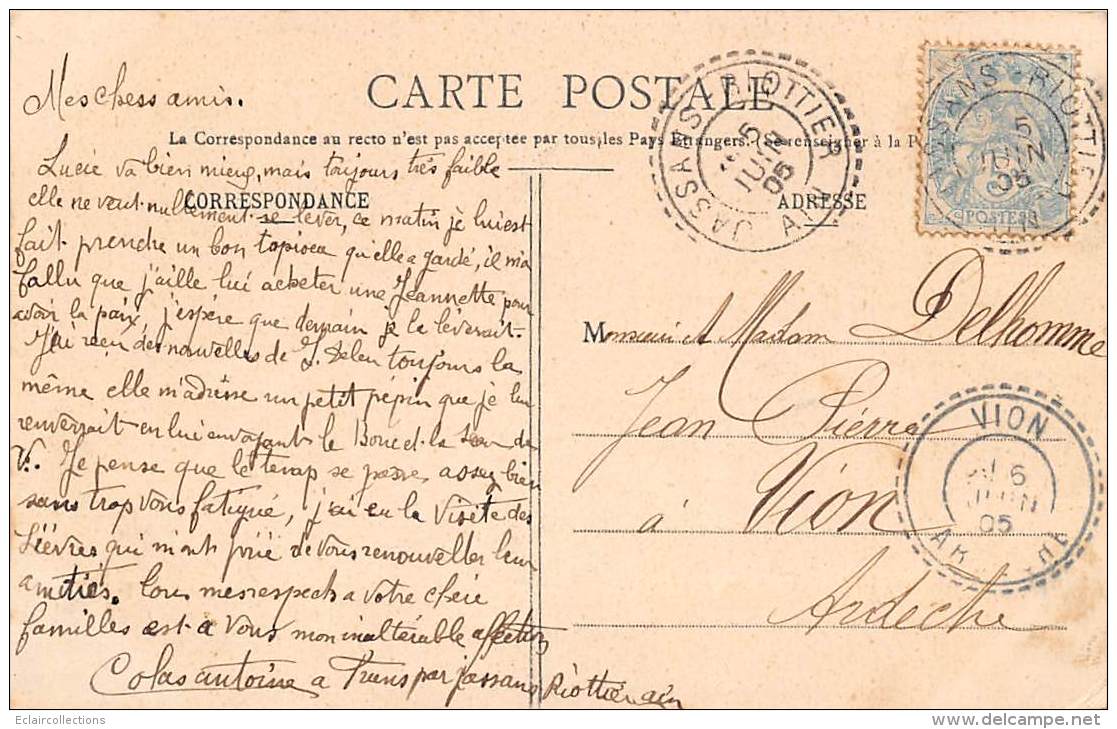 CARTE POSTALE
La Correspondance au recto n'est pas acceptée par tous les Pays Etrangers. (Se renseigner à la P
CORRESPONDANCE
ADRESSE
Mes chess amis.
Lucie va bien mieux, mais toujours très faible
elle ne veut nullement se lever, ce matin je lui est
fait prendre un bon tapioca qu'elle a gardé, il m'a
fallu que j'aille lui acheter une Jeannette pour
avoir la paix, j'espère que demain je la lèverait.
J'ai reçu des nouvelles de toujours la
même elle m'adresse un petit pépin que je lui
renverrait en lui envoyant le
V. Je pense que le temp se passe assez bien
sans trop vous fatigué, j'ai eu la Visite des
Lièvres qui m'ont prié de vous renouveller leur
amitiés. Tous mes respects a votre chère
familles est a vous mon inaltérable affection
Colas antoine a par jassans
Riottier ain
Monsieur et Madam Delhomme
Jean Pierre
à Vion
Ardeche
JASSANS-RIOTTIER
5
JUIN
05
AIN
JASSANS-RIOTTIER
5
JUIN
05
AIN
POSTES
VION
6
JUIN
05
ARDECHE
Eclaircollections
www.delcampe.net